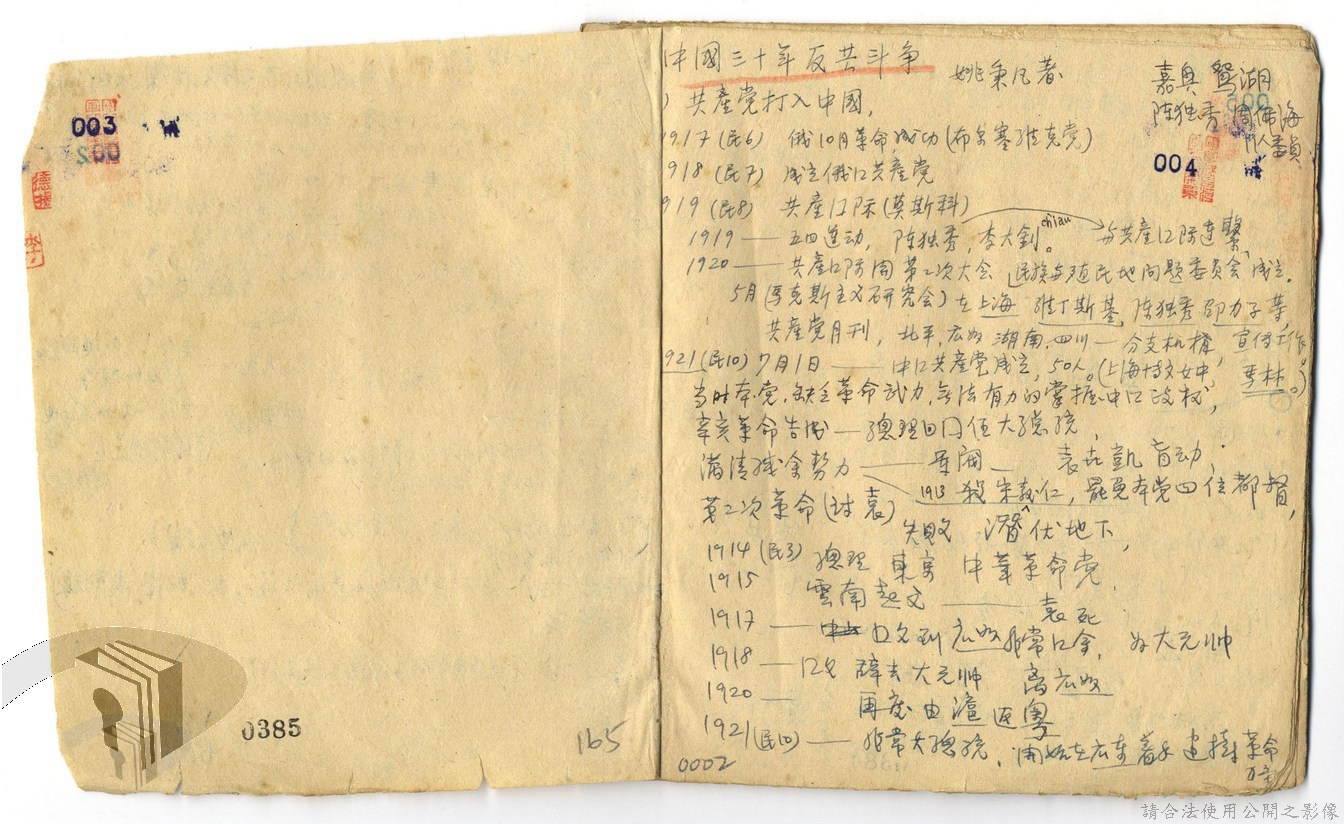 003
002
德振
李
0385
165
中國三十年反共斗争 姚秉凡著
嘉興 鴛湖
陈独秀 周佛海
人委員
004
) 共產党打入中國,
1917 (民6) 俄10月革命成功 (布尔塞維克党)
918 (民7) 成立俄口共產党
919 (民8) 共產口际 (莫斯科)
1919 — 五四运动, 陈独秀, 李大釗。 chiau 与共產口际连繫,
1920 — 共產口际開第二次大会 民族与殖民地问题委员会成立.
5月 (马克斯主义研究会) 在上海 維丁斯基, 陈独秀 邵力子等,
共產党月刊, 北平, 広州 湖南, 四川 — 分支机構, 宣传工作。
921 (民10) 7月1日 — 中口共產党成立, 50人。(上海博文女中, 季林。)
当时本党, 缺乏革命武力, 无法有力的掌握中口政权,
辛亥革命告成 — 總理回口任大總統,
满清残余势力 — 军阀 — 袁世凱盲动;
1913 殺宋教仁, 罷免本党四位都督,
第二次革命 (討袁) 失败 潛伏地下,
1914 (民3) 總理 東京 中華革命党
1915 雲南起义 — 袁死
1917 — 口父到広州非常口会, 为大元帅
1918 — 口父 辞去大元帅 离広州
1920 — 再度由滬返粤
1921 (民10) — 非常大總統, 開始在広东着手建樹革命
0002
請合法使用公開之影像